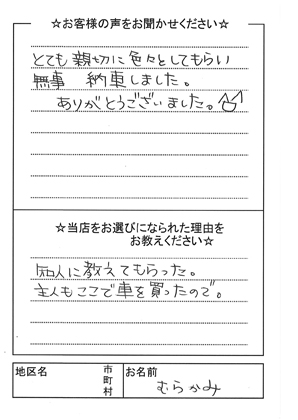 ☆お客様の声をお聞かせください☆
とても親切に色々としてもらい
無事 納車しました。
ありがとうございました。
☆当店をお選びになられた理由を
お教えください☆
知人に教えてもらった。
主人もここで車を買ったので。
地区名 市町村 お名前
むらかみ